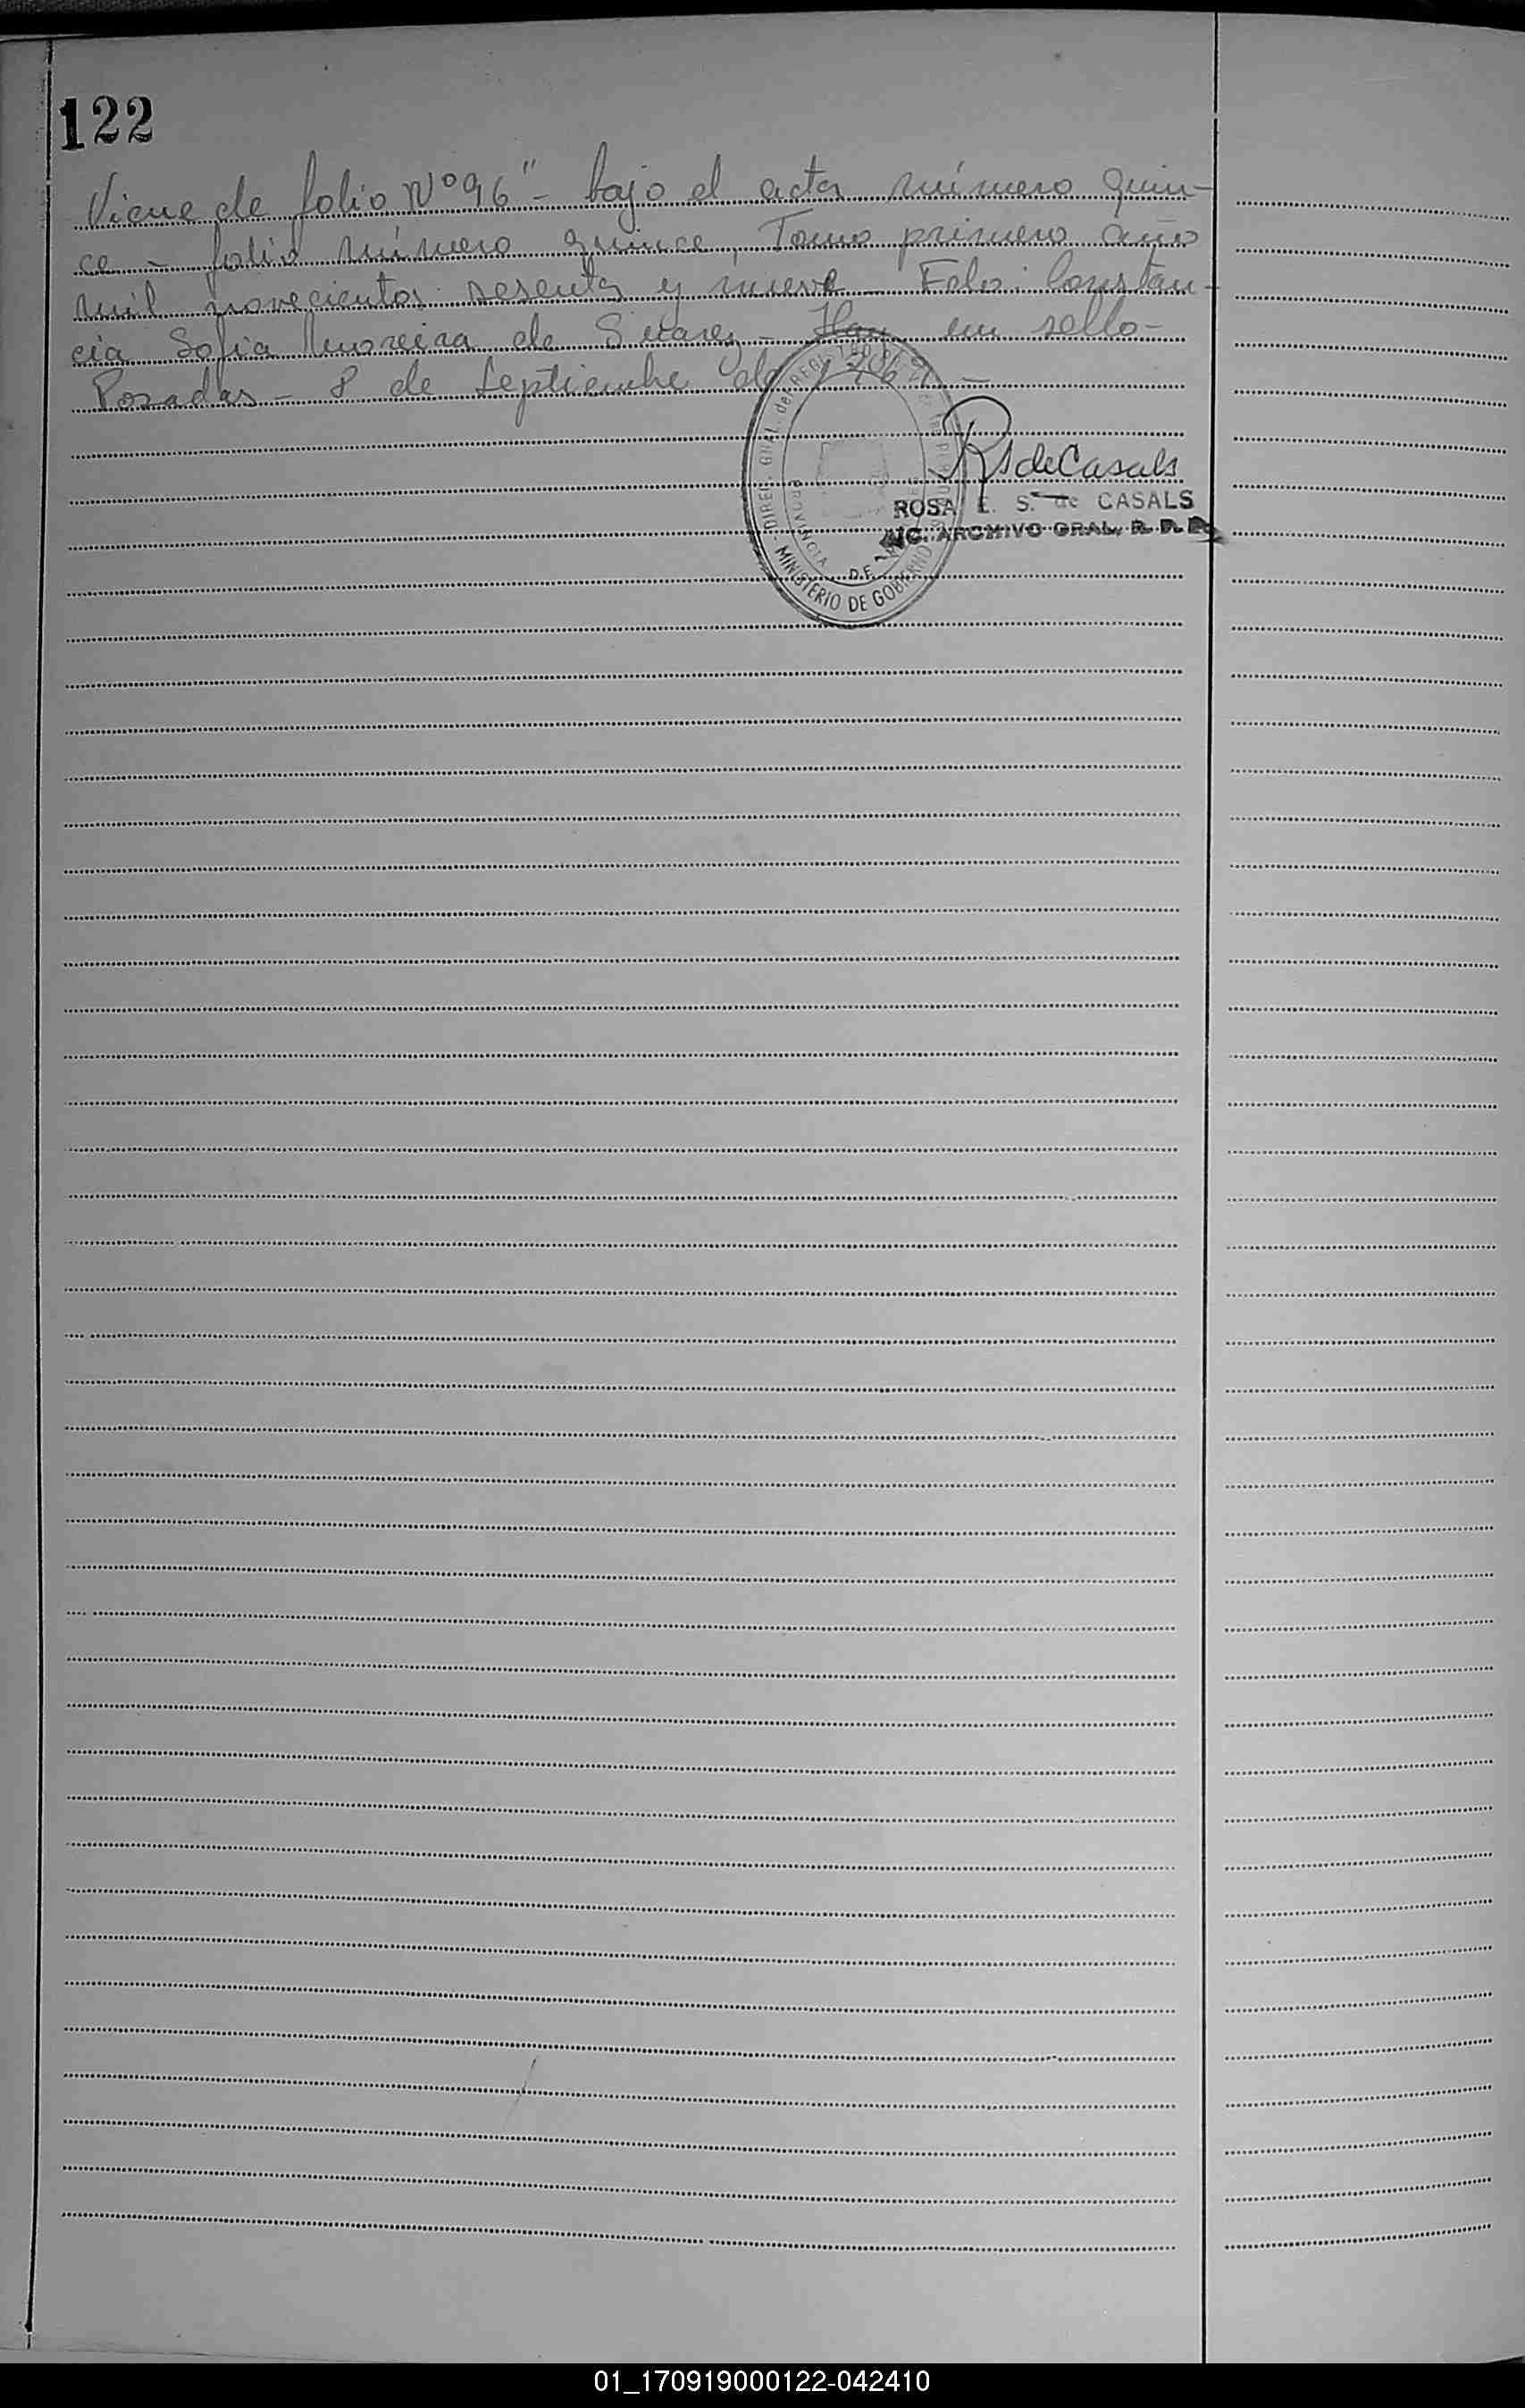 122
Viene de folio Nº 96"- bajo el acta número quin-
ce - folio número quince, Tomo primero año
mil novecientos sesenta y nueve - Fdo: Constan-
cia Sofia Moreira de Suarez - Hay un sello -
Posadas - 8 de Septiembre de 1969 -
RSdeCasals
ROSA E. S. de CASALS
ARCHIVO GRAL. R. P. P.
DIREC. GRAL. del REG.
PROVINCIA
D.F.
MINISTERIO DE GOBIERNO
01_170919000122-042410